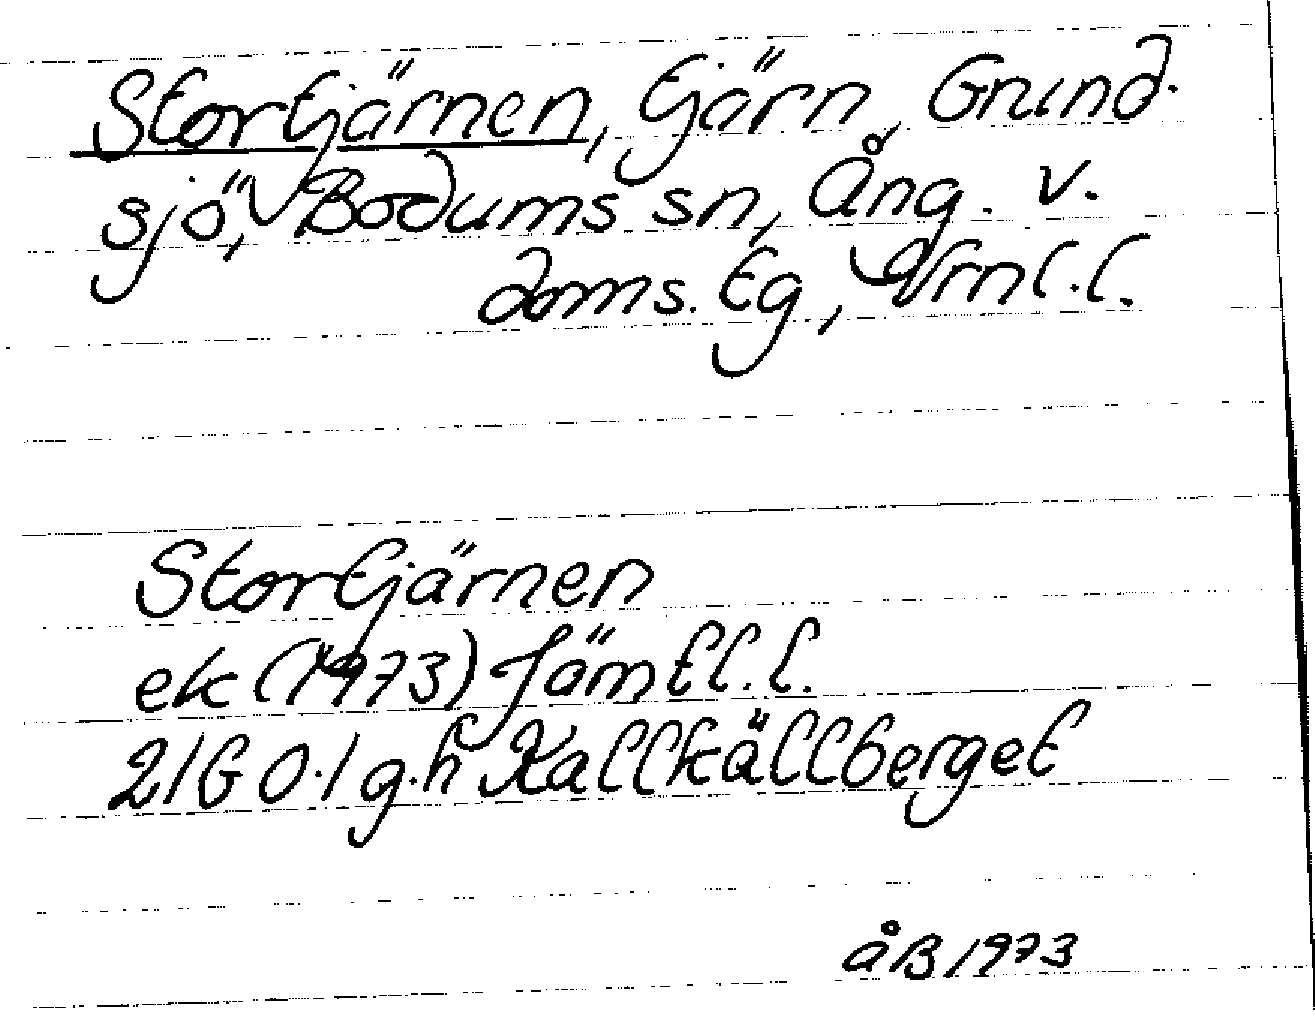 Stortjärnen, tjärn, Grund-
sjö, Bodums sn, Ång. v.
doms. tg, Vrnl.l.
Stortjärnen
ek (1973) Jämtl.l.
21G 0-1 g.h Kallkällberget
åB 1973